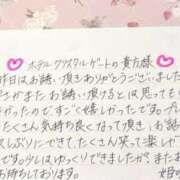 ホテルクリスタルゲートの貴方様
昨日はお誘い頂きありがとうございました
またお誘い頂けるとは思っても
かったのですごく嬉しかったです。プレ
たくさん気持ち良くなって頂き、お話
久しぶりにできて、たくさん笑って楽しい
です。少しはゆっくりできましたか。また
お待ちしております。